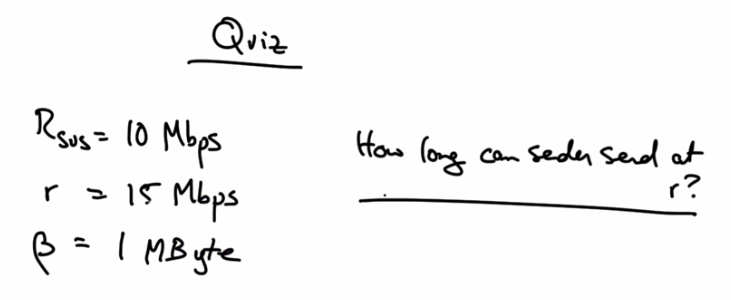 Quiz
R_sus = 10 Mbps
r = 15 Mbps
β = 1 MByte
How long can seder send at
r?